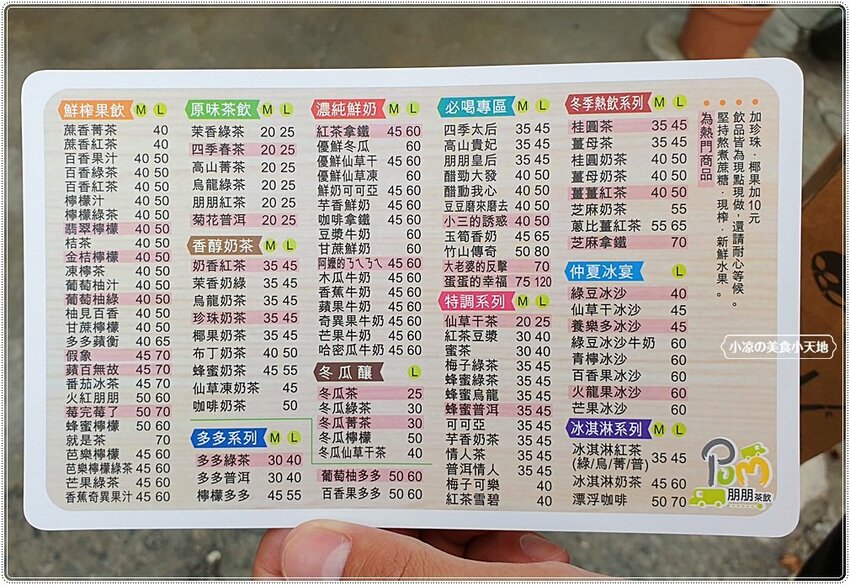 鮮榨果飲 M L
蔗香菁茶 40
蔗香紅茶 40
百香果汁 40 50
百香綠茶 40 50
百香紅茶 40 50
檸檬汁 40 50
檸檬綠茶 40 50
翡翠檸檬 40 50
桔茶 40 50
金桔檸檬 40 50
凍檸茶 40 50
葡萄柚汁 40 50
葡萄柚綠 40 50
柚見百香 40 50
甘蔗檸檬 40 50
多多蘋衡 40 65
假象 45 70
蘋百無故 45 70
番茄冰茶 45 70
火紅朋朋 50 60
莓完莓了 50 70
蜂蜜檸檬 50 60
就是茶 70
芭樂檸檬 45 60
芭樂檸檬綠茶 45 60
芒果綠茶 45 60
香蕉奇異果汁 45 60
原味茶飲 M L
茉香綠茶 20 25
四季春茶 20 25
高山菁茶 20 25
烏龍綠茶 20 25
朋朋紅茶 20 25
菊花普洱 20 25
香醇奶茶 M L
奶香紅茶 35 45
茉香奶綠 35 45
烏龍奶茶 35 45
珍珠奶茶 35 45
椰果奶茶 35 45
布丁奶茶 40 50
蜂蜜奶茶 45 55
仙草凍奶茶 45
咖啡奶茶 50
多多系列 M L
多多綠茶 30 40
多多普洱 30 40
檸檬多多 45 55
濃純鮮奶 M L
紅茶拿鐵 45 60
優鮮冬瓜 60
優鮮仙草干 45 60
優鮮仙草凍 60
鮮奶可可亞 45 60
芋香鮮奶 45 60
咖啡拿鐵 45 60
豆漿牛奶 60
甘蔗鮮奶 60
阿嬤的ㄋㄟㄋㄟ 45 60
木瓜牛奶 45 60
香蕉牛奶 45 60
蘋果牛奶 45 60
奇異果牛奶 45 60
芒果牛奶 45 60
哈密瓜牛奶 45 60
冬瓜釀 L
冬瓜茶 25
冬瓜綠茶 30
冬瓜菁茶 30
冬瓜檸檬 50
冬瓜仙草干茶 40
葡萄柚多多 50 60
百香果多多 50 60
必喝專區 M L
四季太后 35 45
高山貴妃 35 45
朋朋皇后 35 45
醋勁大發 40 50
醋動我心 40 50
豆豆磨來磨去 40 50
小三的誘惑 40 50
玉荀香奶 45 65
竹山傳奇 50 80
大老婆的反擊 70
蛋蛋的幸福 75 120
特調系列 M L
仙草干茶 20 25
紅茶豆漿 30 40
蜜茶 30 40
梅子綠茶 35 45
蜂蜜綠茶 35 45
蜂蜜烏龍 35 45
蜂蜜普洱 35 45
可可亞 35 45
芋香奶茶 35 45
情人茶 35 45
普洱情人 35 45
梅子可樂 40
紅茶雪碧 40
冬季熱飲系列 M L
桂圓茶 35 45
薑母茶 35 45
桂圓奶茶 40 50
薑母奶茶 40 50
薑薑紅茶 40 50
芝麻奶茶 55
蔥比薑紅茶 55 65
芝麻拿鐵 70
仲夏冰宴 L
綠豆冰沙 40
仙草干冰沙 45
養樂多冰沙 45
綠豆冰沙牛奶 60
青檸冰沙 60
百香果冰沙 60
火龍果冰沙 60
芒果冰沙 60
冰淇淋系列 M L
冰淇淋紅茶 35 45
(綠/烏/菁/普)
冰淇淋奶茶 45 60
漂浮咖啡 50 70
加珍珠．椰果加10元
飲品皆為現點現做，還請耐心等候。
堅持熬煮蔗糖．現榨．新鮮水果。
為熱門商品
小凉の美食小天地
Pom
朋朋茶飲